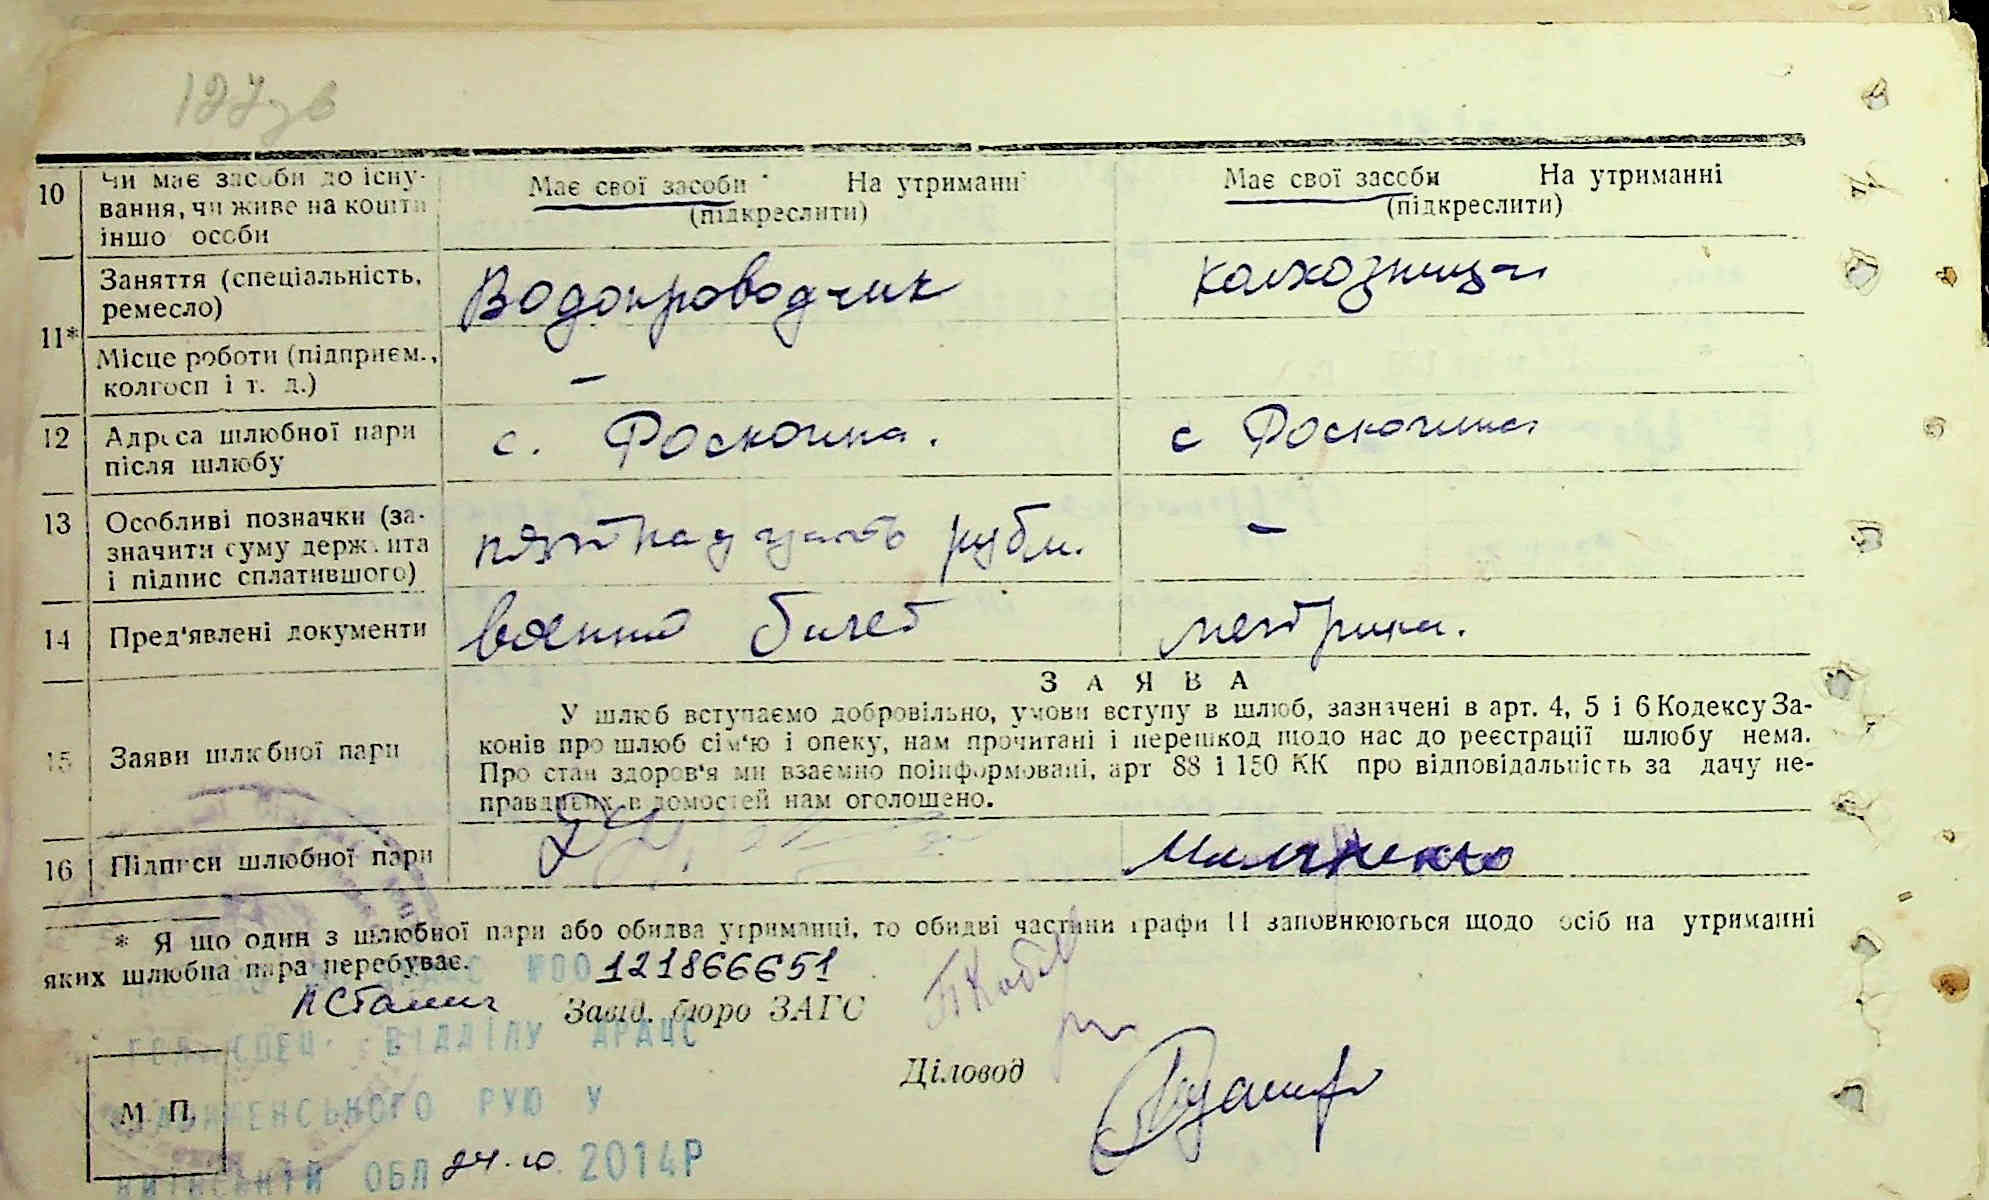 127зв
10 Чи має засоби до існу- Має свої засоби На утриманні Має свої засоби На утриманні
вання, чи живе на кошти (підкреслити) (підкреслити)
іншо особи
11* Заняття (спеціальність, Водопроводчик колхозница
ремесло)
Місце роботи (підприєм., –
колгосп і т. д.)
12 Адреса шлюбної пари с. Роскошна. с Роскошна
після шлюбу
13 Особливі позначки (за- пятнадцать рубл. –
значити суму держмита
і підпис сплатившого)
14 Пред'явлені документи воєнний билет метрика.
15 Заяви шлюбної пари
З А Я В А
У шлюб вступаємо добровільно, умови вступу в шлюб, зазначені в арт. 4, 5 і 6 Кодексу За-
конів про шлюб сім'ю і опеку, нам прочитані і перешкод щодо нас до реєстрації шлюбу нема.
Про стан здоров'я ми взаємно поінформовані, арт 88 і 150 КК про відповідальність за дачу не-
правдивих відомостей нам оголошено.
16 Підписи шлюбної пари
* Якщо один з шлюбної пари або обидва утриманці, то обидві частини графи 11 заповнюються щодо осіб на утриманні
яких шлюбна пара перебуває.
№00121866651
Завід. бюро ЗАГС
ГОЛ СПЕЦ ВІДДІЛУ ДРАЦС
Діловод
М П.
РУЮ У
ОБЛ 24.10. 2014Р